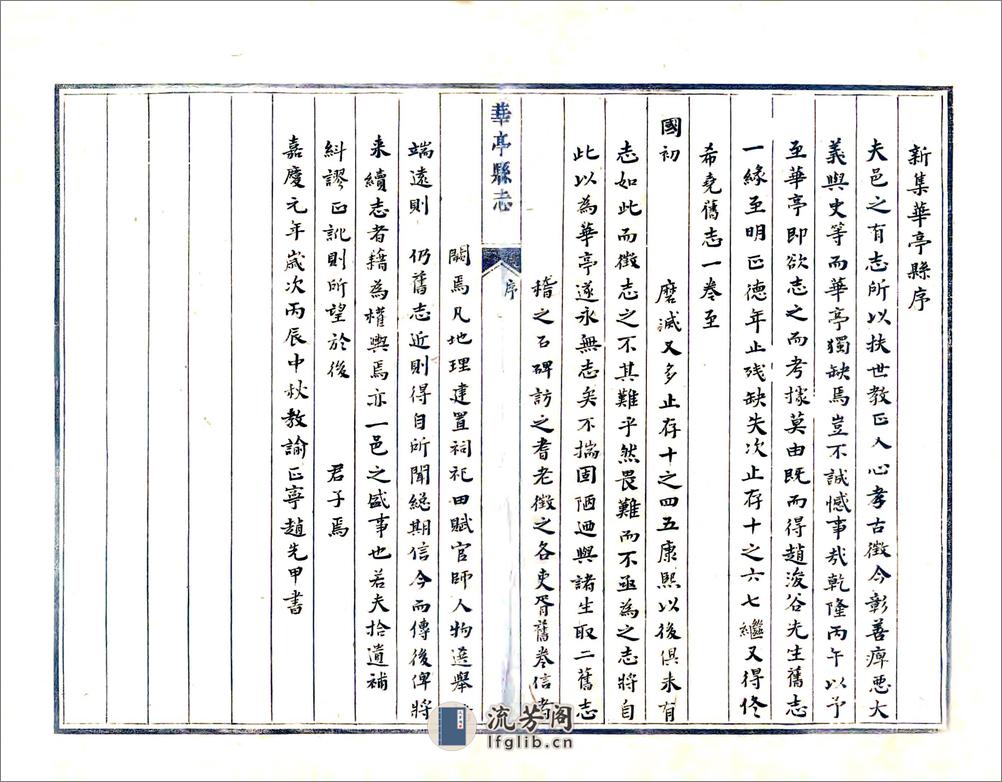 新集華亭縣序
夫邑之有志所以扶世教正人心考古徵今彰善癉惡大
義與史等而華亭獨缺焉豈不誠憾事哉乾隆丙午以予
至華亭即欲志之而考據莫由既而得趙浚谷先生舊志
一緣至明正德年止殘缺失次止存十之六七繼又得佟
希堯舊志一卷至
國初 磨滅又多止存十之四五康熙以後俱未有
志如此而徵志之不其難乎然畏難而不亟為之志將自
此以為華亭遂永無志矣不揣固陋迺與諸生取二舊志
稽之石碑訪之耆老徵之各吏胥舊卷信者
華亭縣志
序
闕焉凡地理建置祠祀田賦官師人物選舉
端遠則 仍舊志近則得自所聞總期信今而傳後俾將
来續志者藉為權輿焉亦一邑之盛事也若夫拾遺補
糾謬正訛則所望於後 君子焉
嘉慶元年歲次丙辰中秋教諭正寧趙先甲書
流芳阁
lfglib.cn